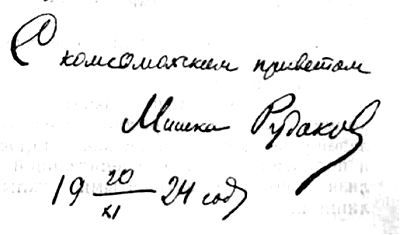 С комсомольским приветом
Мишка Рудаков
19 20/XI 24 год